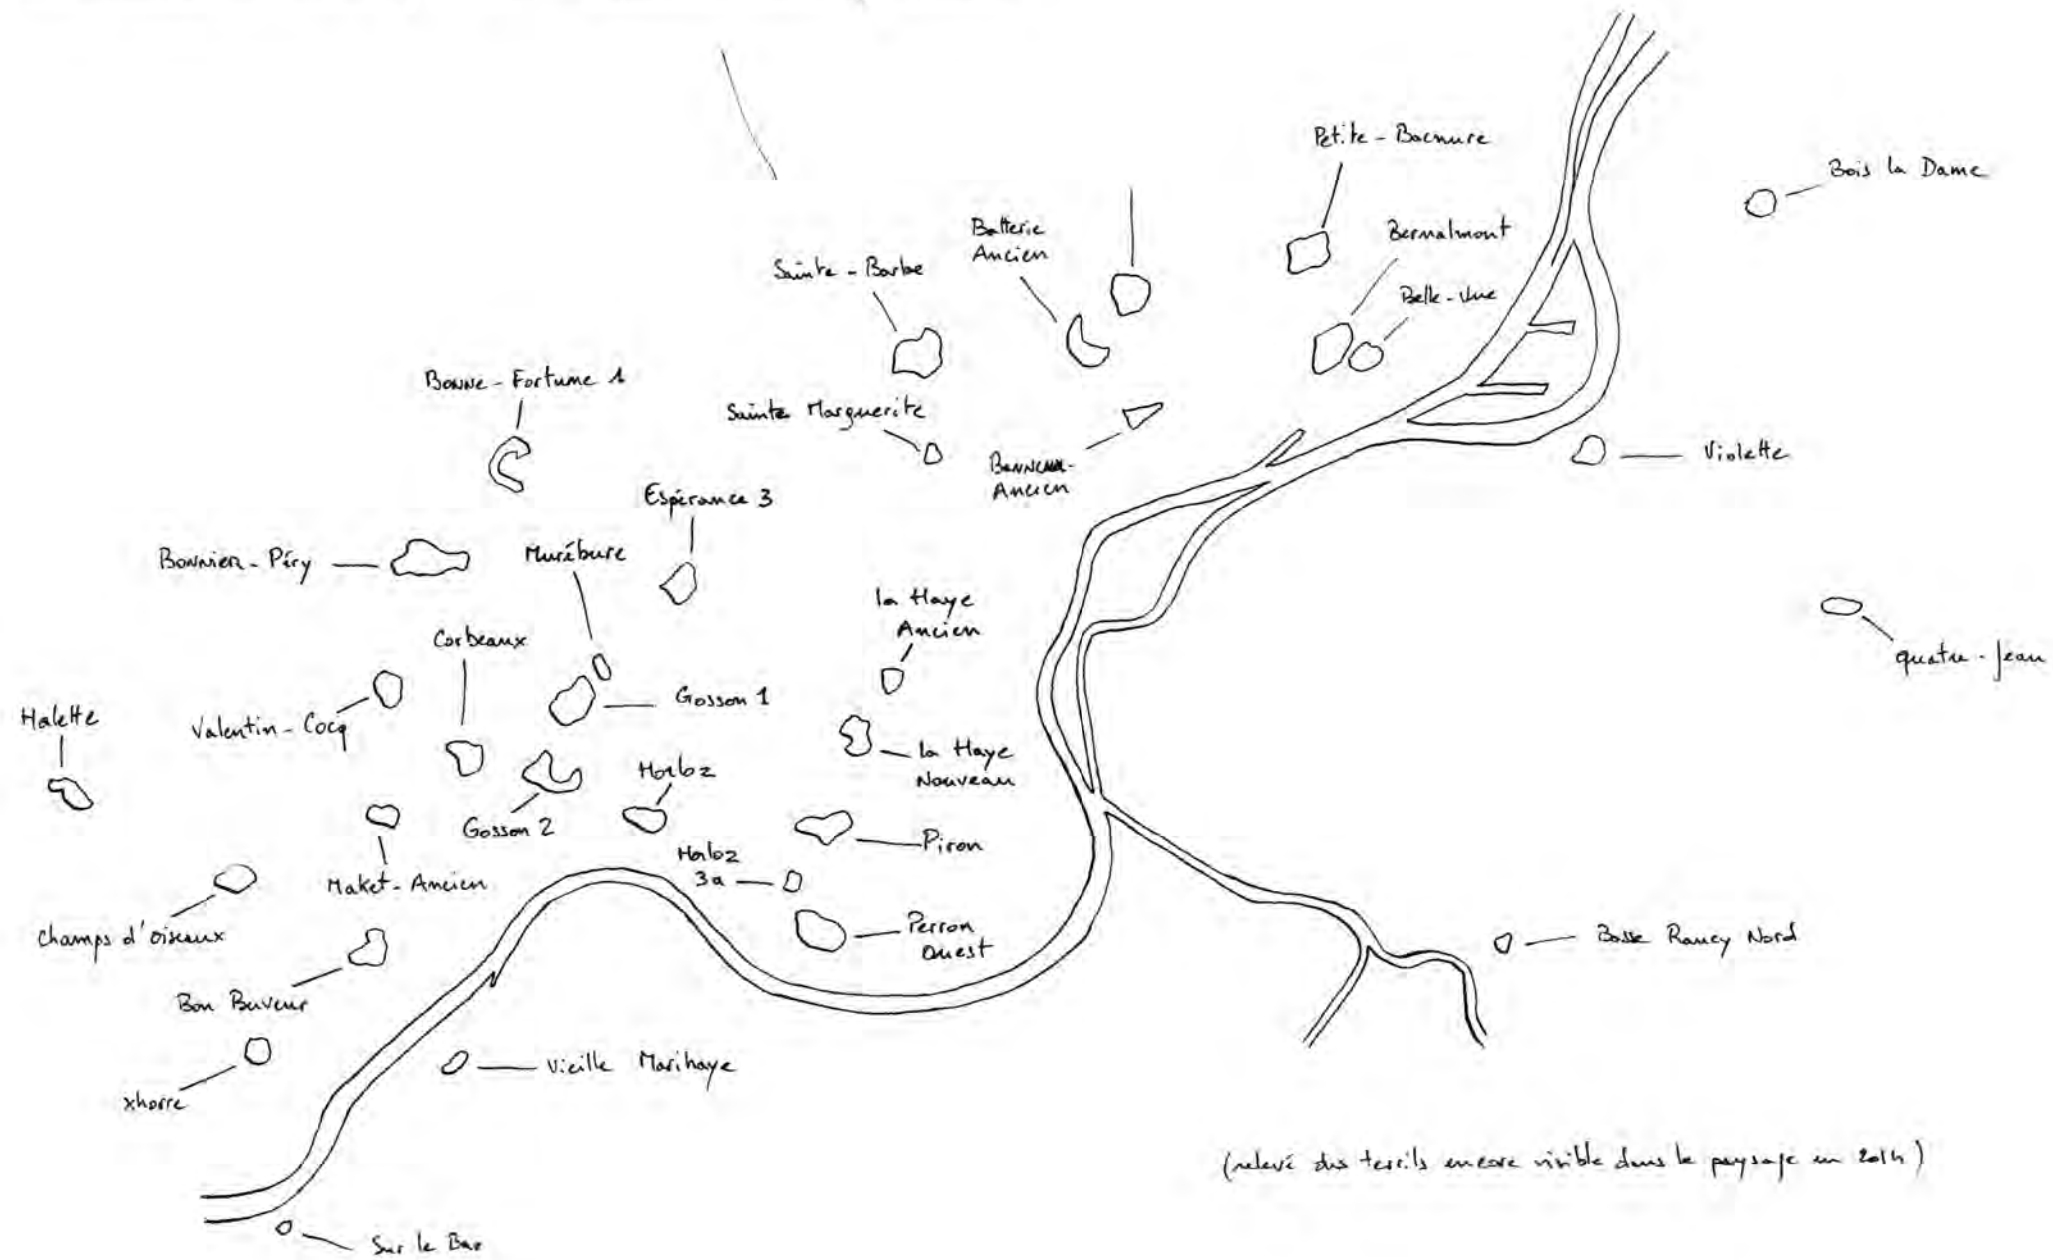 Petite-Bacnure
Bois la Dame
Batterie
Ancien
Bernalmont
Sainte-Barbe
Belle-Vue
Bonne-Fortune 1
Sainte Marguerite
Violette
Espérance 3
Ancien
Bonnier-Péry
Murébure
la Haye
Ancien
Corbeaux
quatre-Jean
Gosson 1
Halette
Valentin-Cocq
la Haye
Nouveau
Horloz
Gosson 2
Piron
Horloz
3a
Maket-Ancien
Champs d'oiseaux
Perron
Ouest
Basse Rancy Nord
Bon Buveur
Vieille Marihaye
xhorre
(relevé des terrils encore visible dans le paysage en 2014)
Sur le Bac